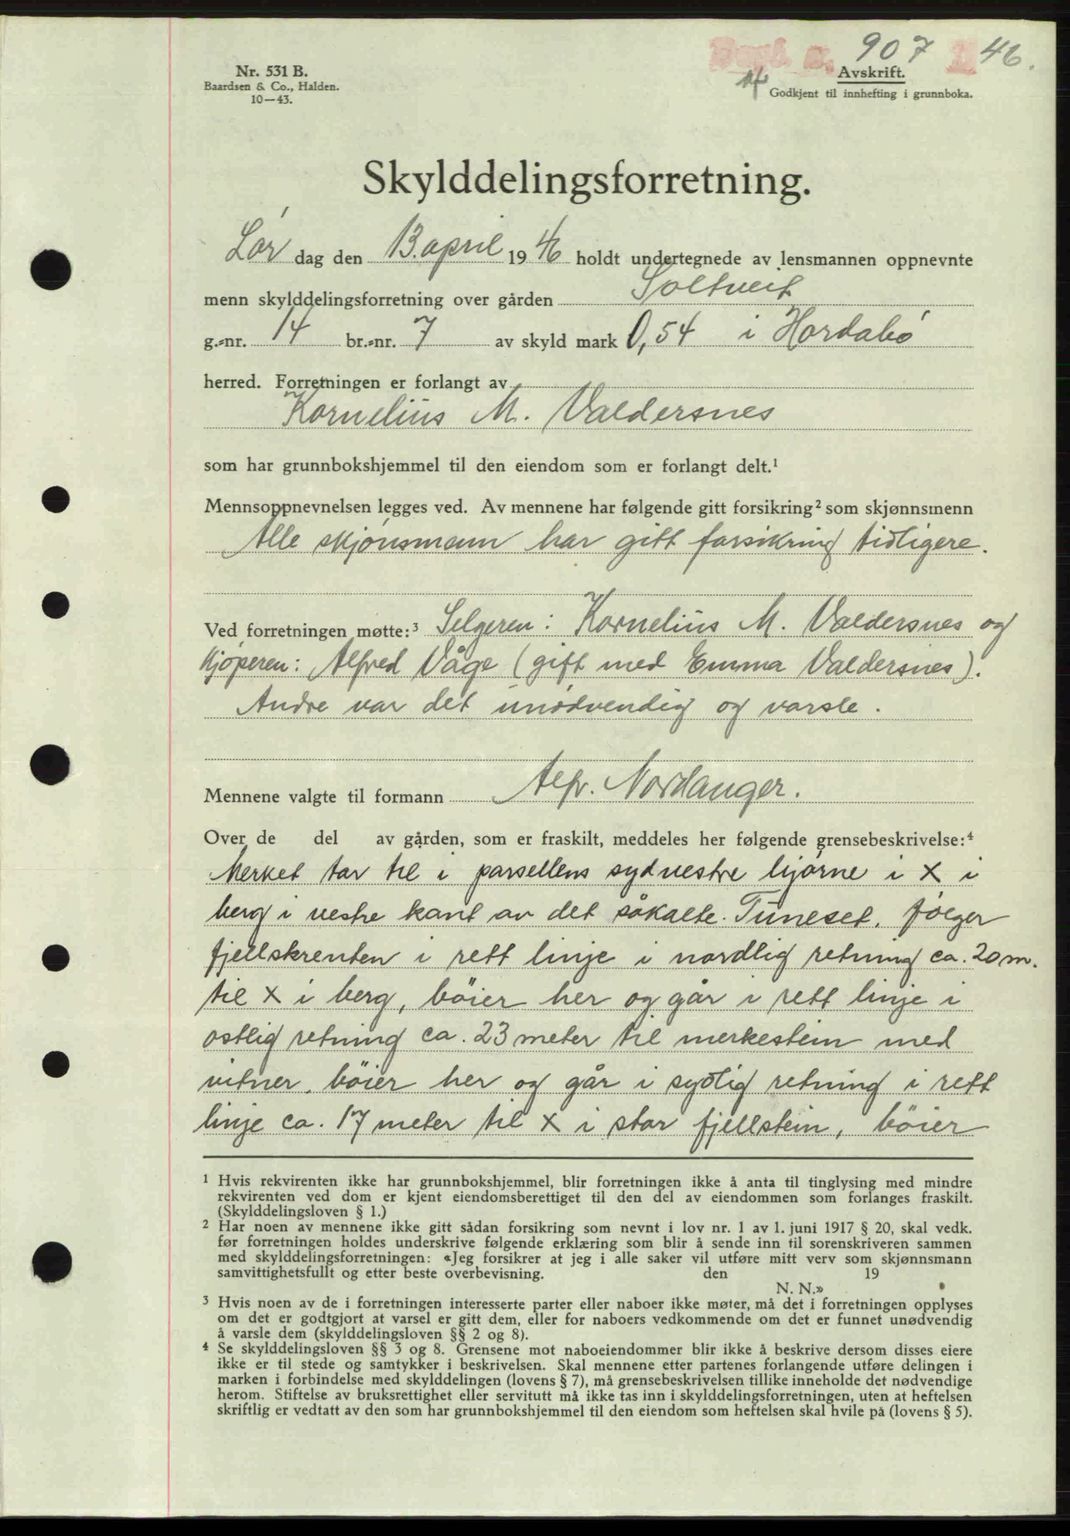 907 46.
Nr. 531 B.
Baardsen & Co., Halden.
10—43.
Avskrift.
Godkjent til innhefting i grunnboka.
Skylddelingsforretning.
Lør dag den 13. april 1946 holdt undertegnede av lensmannen oppnevnte
menn skylddelingsforretning over gården Soltveit
g.-nr. 14 br.-nr. 7 av skyld mark 0,54 i Hordabø
herred. Forretningen er forlangt av
Kornelius M. Valdersnes
som har grunnbokshjemmel til den eiendom som er forlangt delt.¹
Mennsoppnevnelsen legges ved. Av mennene har følgende gitt forsikring² som skjønnsmenn
Alle skjønsmenn har gitt forsikring tidligere.
Ved forretningen møtte:³ Selgeren: Kornelius M. Valdersnes og
kjøperen: Alfred Våge (gift med Emma Valdersnes).
Andre var det unødvendig og varsle.
Mennene valgte til formann Alfr. Nordanger.
Over de del av gården, som er fraskilt, meddeles her følgende grensebeskrivelse:⁴
Merket tar til i parsellens sydvestre hjørne i X i
berg i vestre kant av det såkalte Tuneset, følger
fjellskrenten i rett linje i nordlig retning ca. 20 m.
til X i berg, bøier her og går i rett linje i
østlig retning ca. 23 meter til merkestein med
vitner, bøier her og går i sydlig retning i rett
linje ca. 17 meter til X i stor fjellstein, bøier
¹ Hvis rekvirenten ikke har grunnbokshjemmel, blir forretningen ikke å anta til tinglysing med mindre
rekvirenten ved dom er kjent eiendomsberettiget til den del av eiendommen som forlanges fraskilt.
(Skylddelingsloven § 1.)
² Har noen av mennene ikke gitt sådan forsikring som nevnt i lov nr. 1 av 1. juni 1917 § 20, skal vedk.
før forretningen holdes underskrive følgende erklæring som blir å sende inn til sorenskriveren sammen
med skylddelingsforretningen: «Jeg forsikrer at jeg i alle saker vil utføre mitt verv som skjønnsmann
samvittighetsfullt og etter beste overbevisning. den 19
N. N.»
³ Hvis noen av de i forretningen interesserte parter eller naboer ikke møter, må det i forretningen opplyses
om det er godtgjort at varsel er gitt dem, eller for naboers vedkommende om det er funnet unødvendig
å varsle dem (skylddelingsloven §§ 2 og 8).
⁴ Se skylddelingsloven §§ 3 og 8. Grensene mot naboeiendommer blir ikke å beskrive dersom disses eiere
ikke er til stede og samtykker i beskrivelsen. Skal mennene etter partenes forlangende utføre delingen i
marken i forbindelse med skylddelingen (lovens § 7), må grensebeskrivelsen tillike inneholde det nødvendige
herom. Stiftelse av bruksrettighet eller servitutt må ikke tas inn i skylddelingsforretningen, uten at heftelsen
skriftlig er vedtatt av den som har grunnbokshjemmel til den eiendom som heftelsen skal hvile på (lovens § 5).